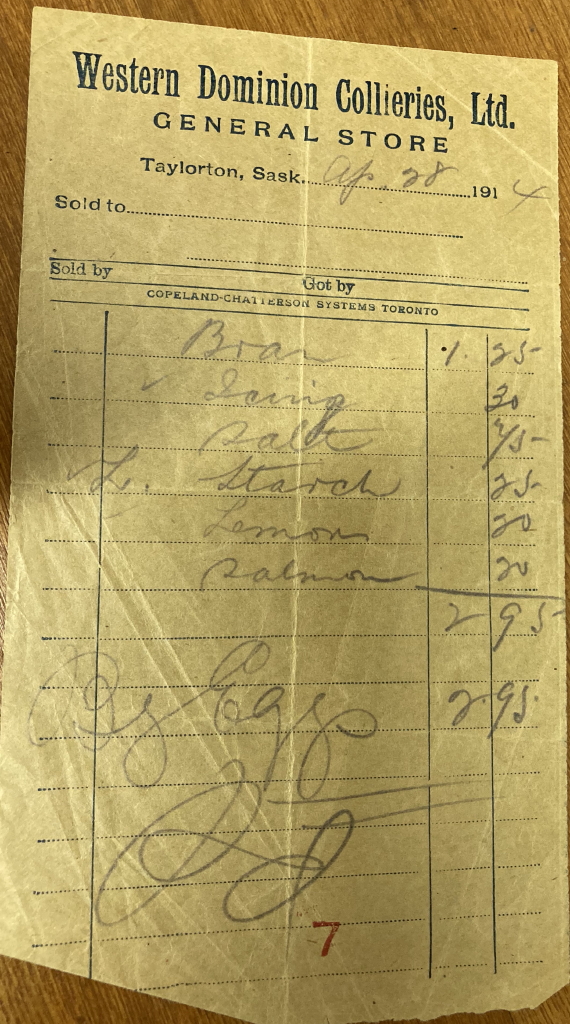 Western Dominion Collieries, Ltd.
GENERAL STORE
Taylorton, Sask. Ap. 28 1914
Sold to
Sold by Got by
COPELAND-CHATTERSON SYSTEMS TORONTO
Bran 1. 25
Icing 30
Salt 75
L. Starch 25
Lemons 20
Salmon 20
2 95
By Eggs 2.95
7